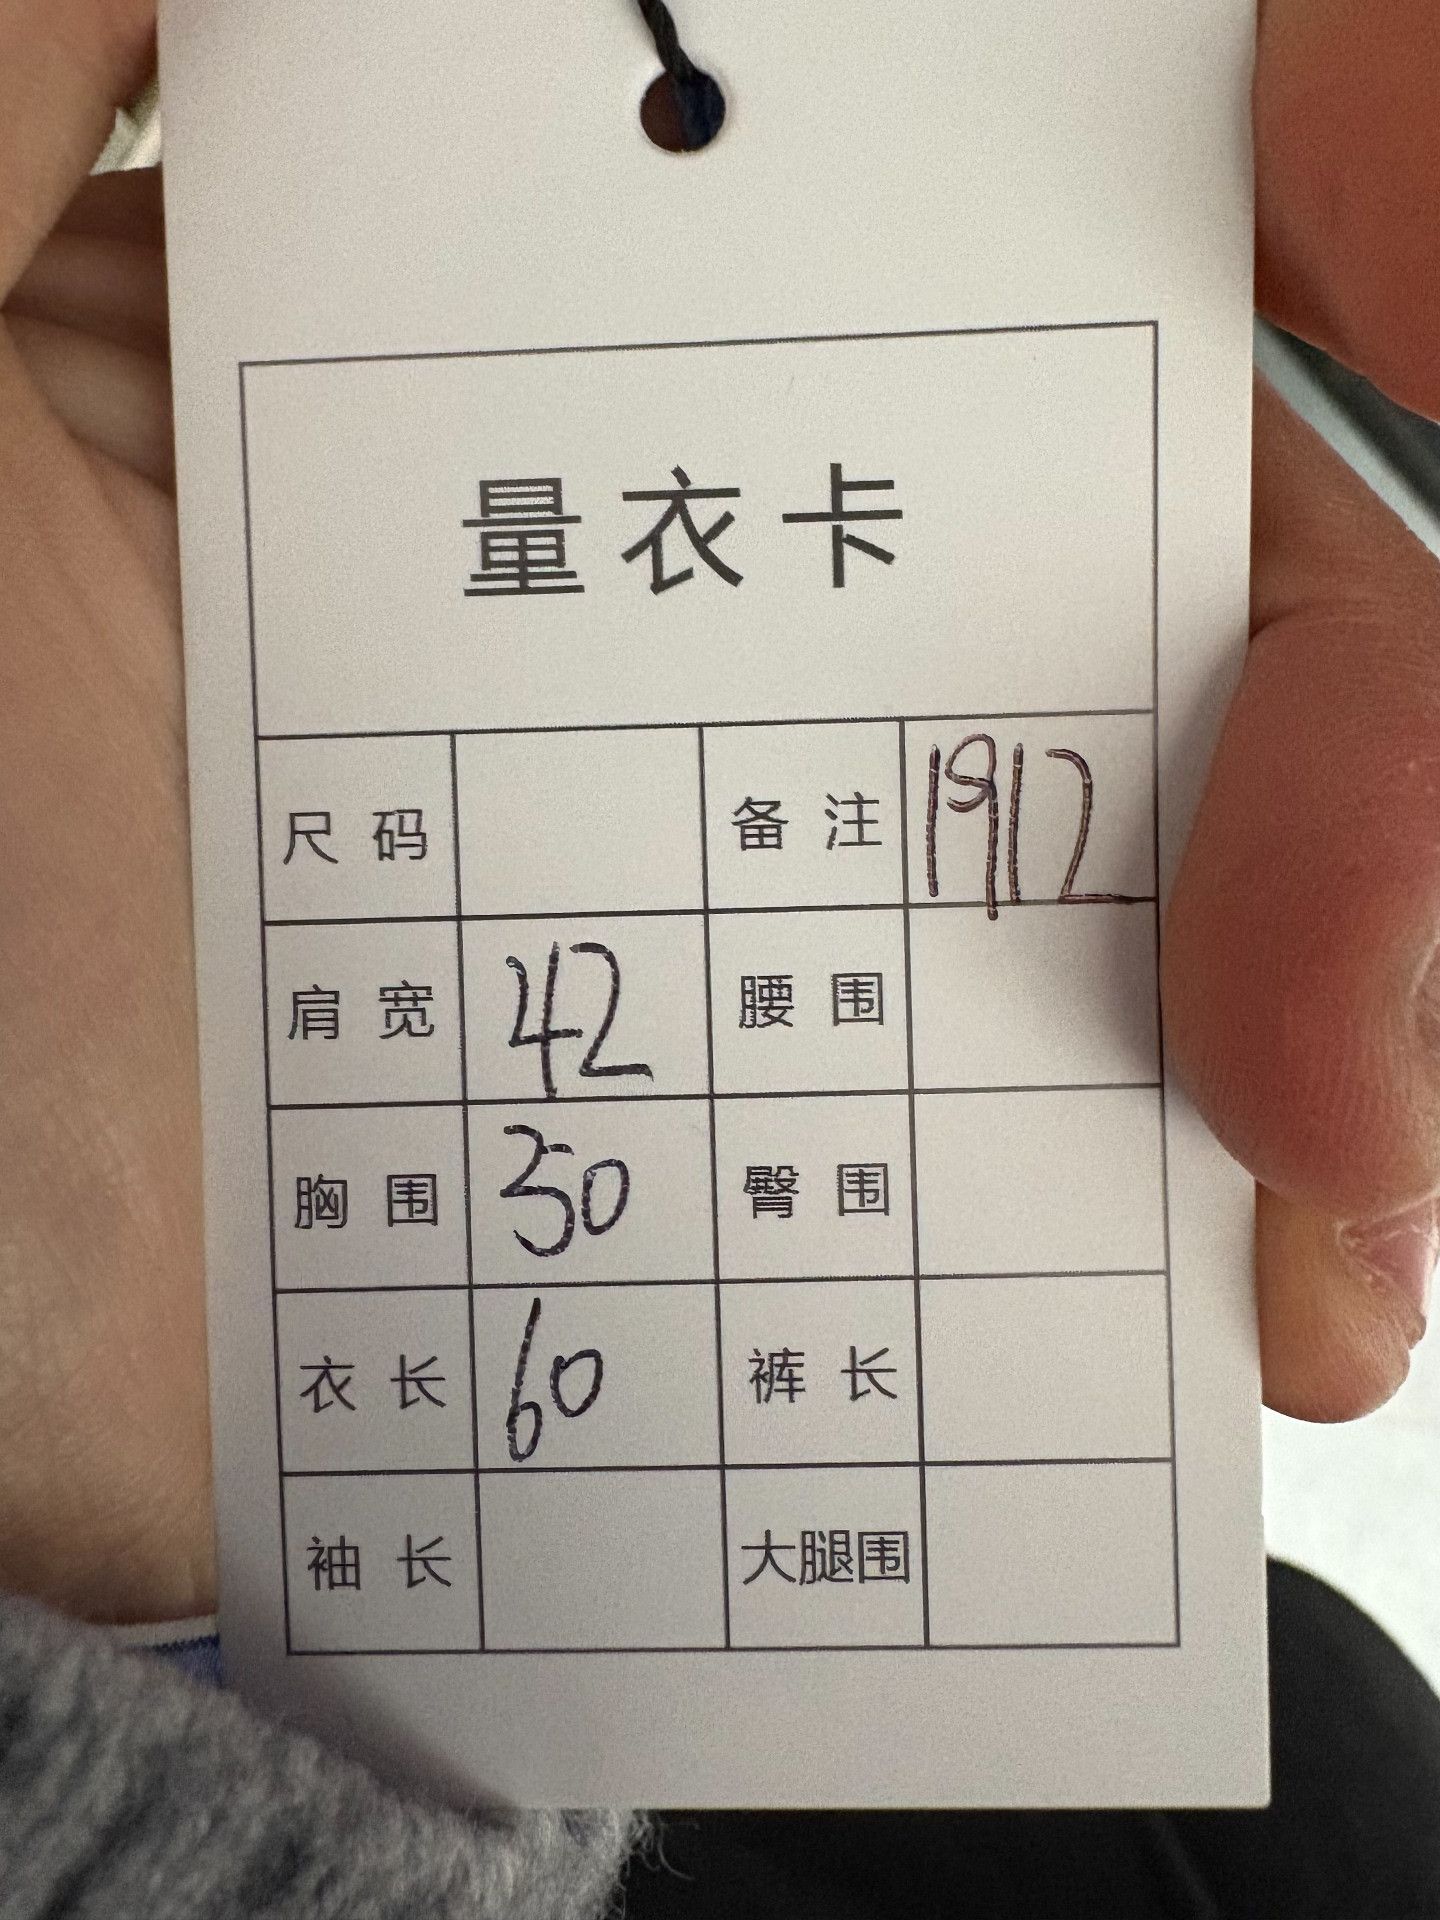 量衣卡
尺码 备注 1912
肩宽 42 腰围
胸围 50 臀围
衣长 60 裤长
袖长 大腿围